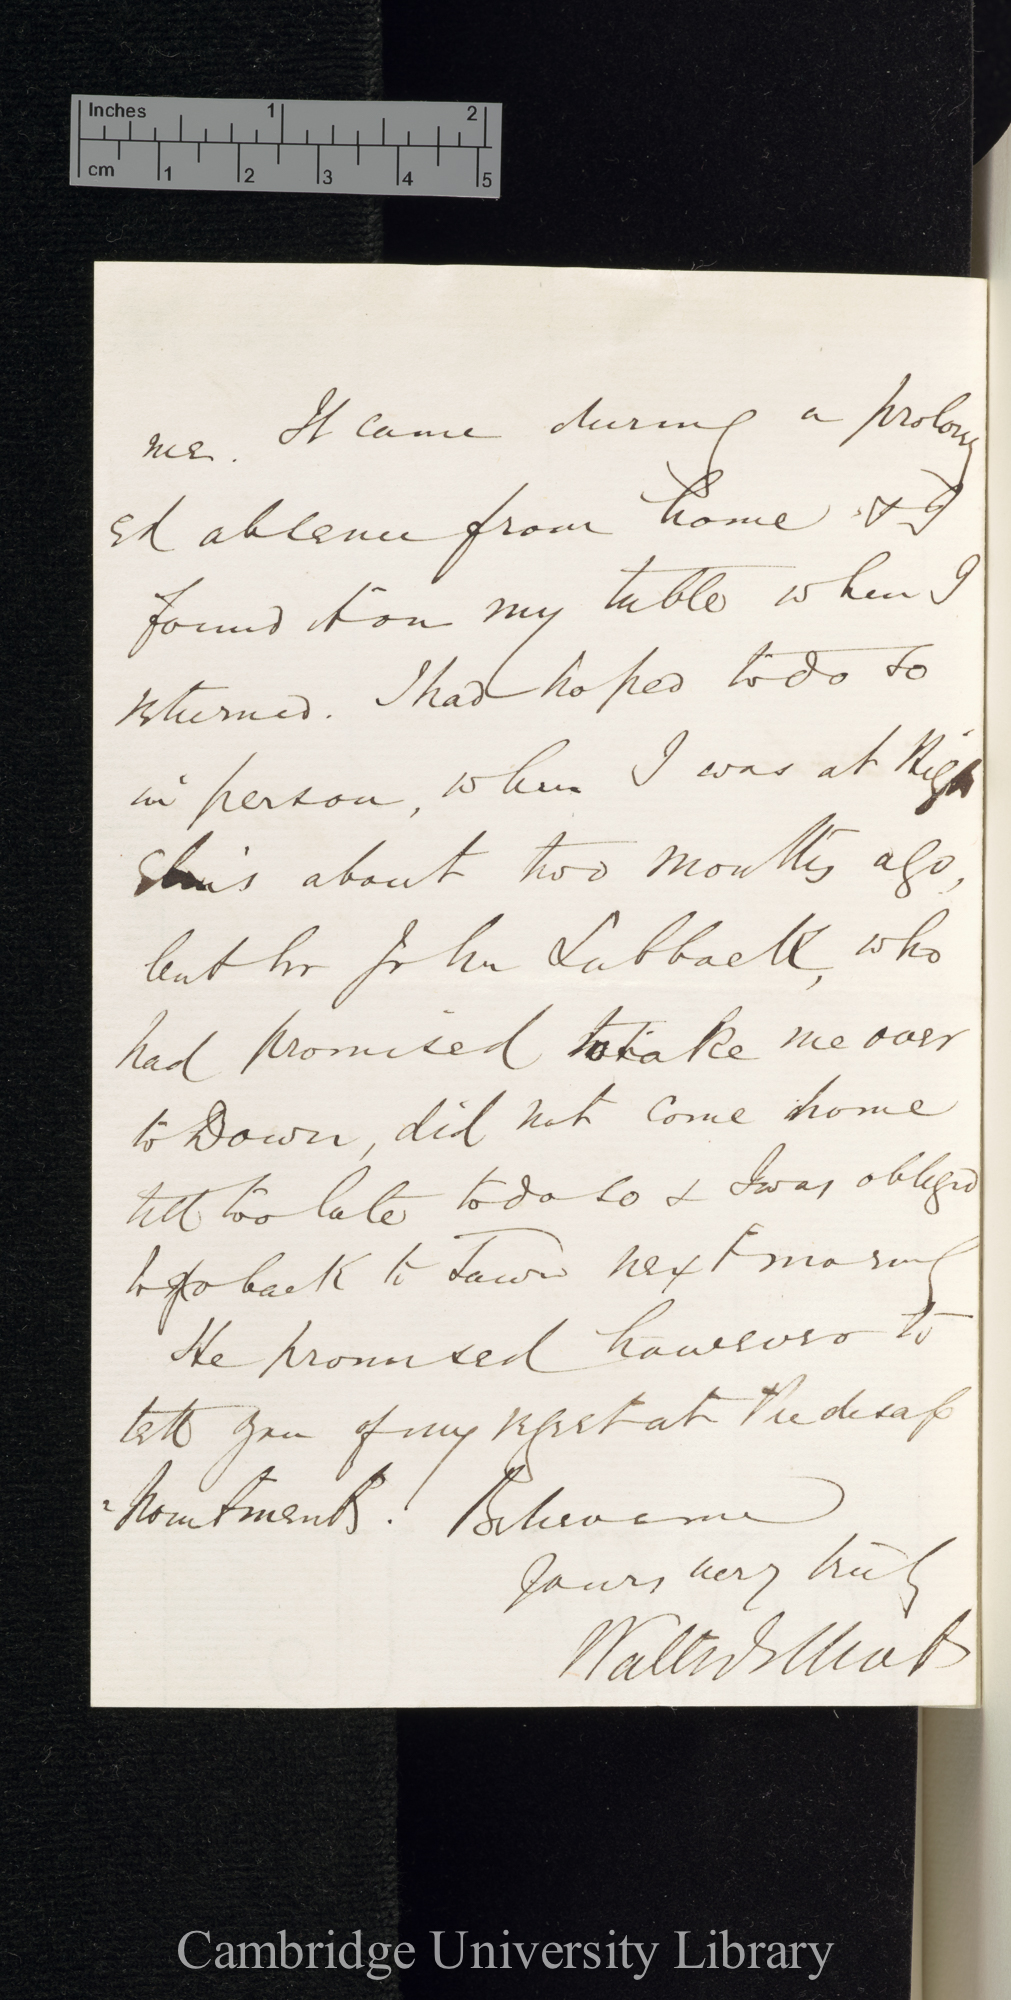 Inches 1 2
cm 1 2 3 4 5
me. It came during a prolong
ed absence from home & I
found it on my table when I
returned. I had hoped to do so
in person, when I was at High
Elms about two months ago,
but Sir John Lubbock, who
had promised to take me over
to Down, did not come home
till too late to do so & I was obliged
to go back to Town next morning
He promised however to
tell you of my regret at the disap
=pointment. Believe me
Yours very truly
Walter Elliot
Cambridge University Library